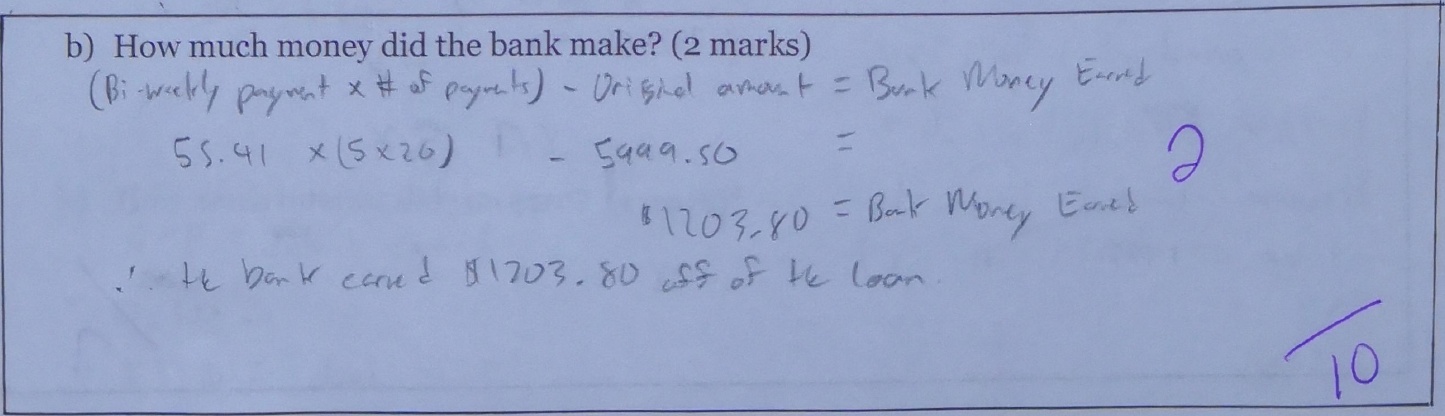 b) How much money did the bank make? (2 marks)
(Bi-weekly payment x # of payments) - Original amount = Bank Money Earned
55.41 x (5x26) - 5999.50 =
2
$1203.80 = Bank Money Earned
∴ the bank earned $1203.80 off of the loan.
/10